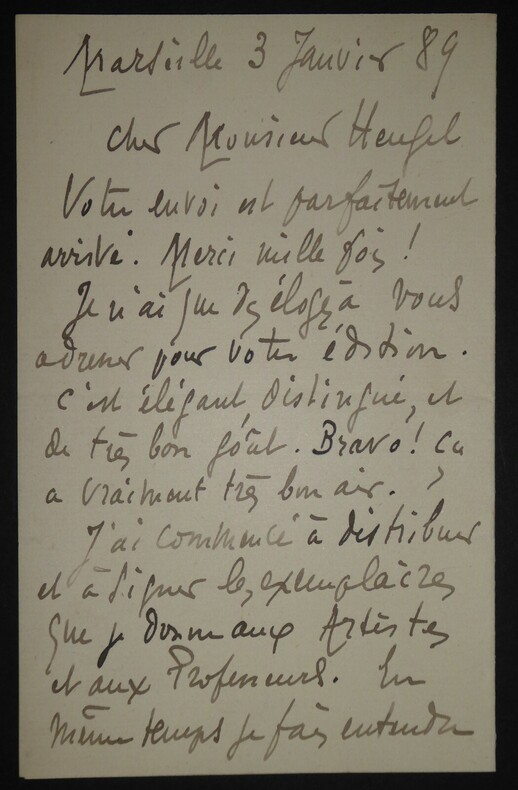 Marseille 3 Janvier 89
cher Monsieur Heugel
Votre envoi est parfaitement
arrivé. Merci mille fois !
Je n'ai que des éloges à vous
adresser pour votre édition.
c'est élégant, distingué, et
de très bon goût. Bravo ! ça
a vraiment très bon air.
J'ai commencé à distribuer
et à signer les exemplaires
que je donne aux Artistes
et aux Professeurs. En
même temps je fais entendre